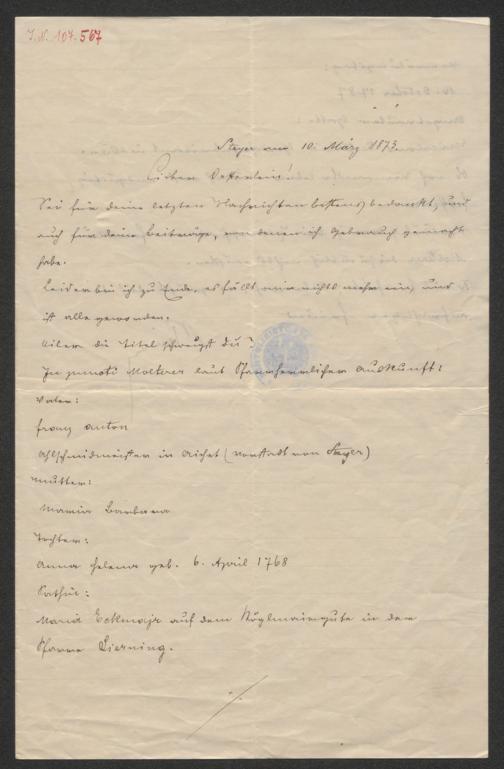 J.N. 107.567
Steyr am 10. März 1873.
Lieber Vetterlein!
Sei für deine letzten Nachrichten bestens bedankt, und
auch für deine Beiträge, von denen ich Gebrauch gemacht
habe.
Leider bin ich zu Ende, es fällt mir nichts mehr ein, und
ist alle geworden.
Über die Titel schweigst du?
In puncti Molterer laut Pfarrherrlicher Auskunft:
Vater:
Franz Anton
Ahlschmidmeister in Aichet (Vorstadt von Steyer)
Mutter:
Maria Barbara
Tochter:
Anna Helena geb. 6. April 1768
Pathin:
Maria Eckmajr auf dem Köglmairgute in der
Pfarre Sierning.